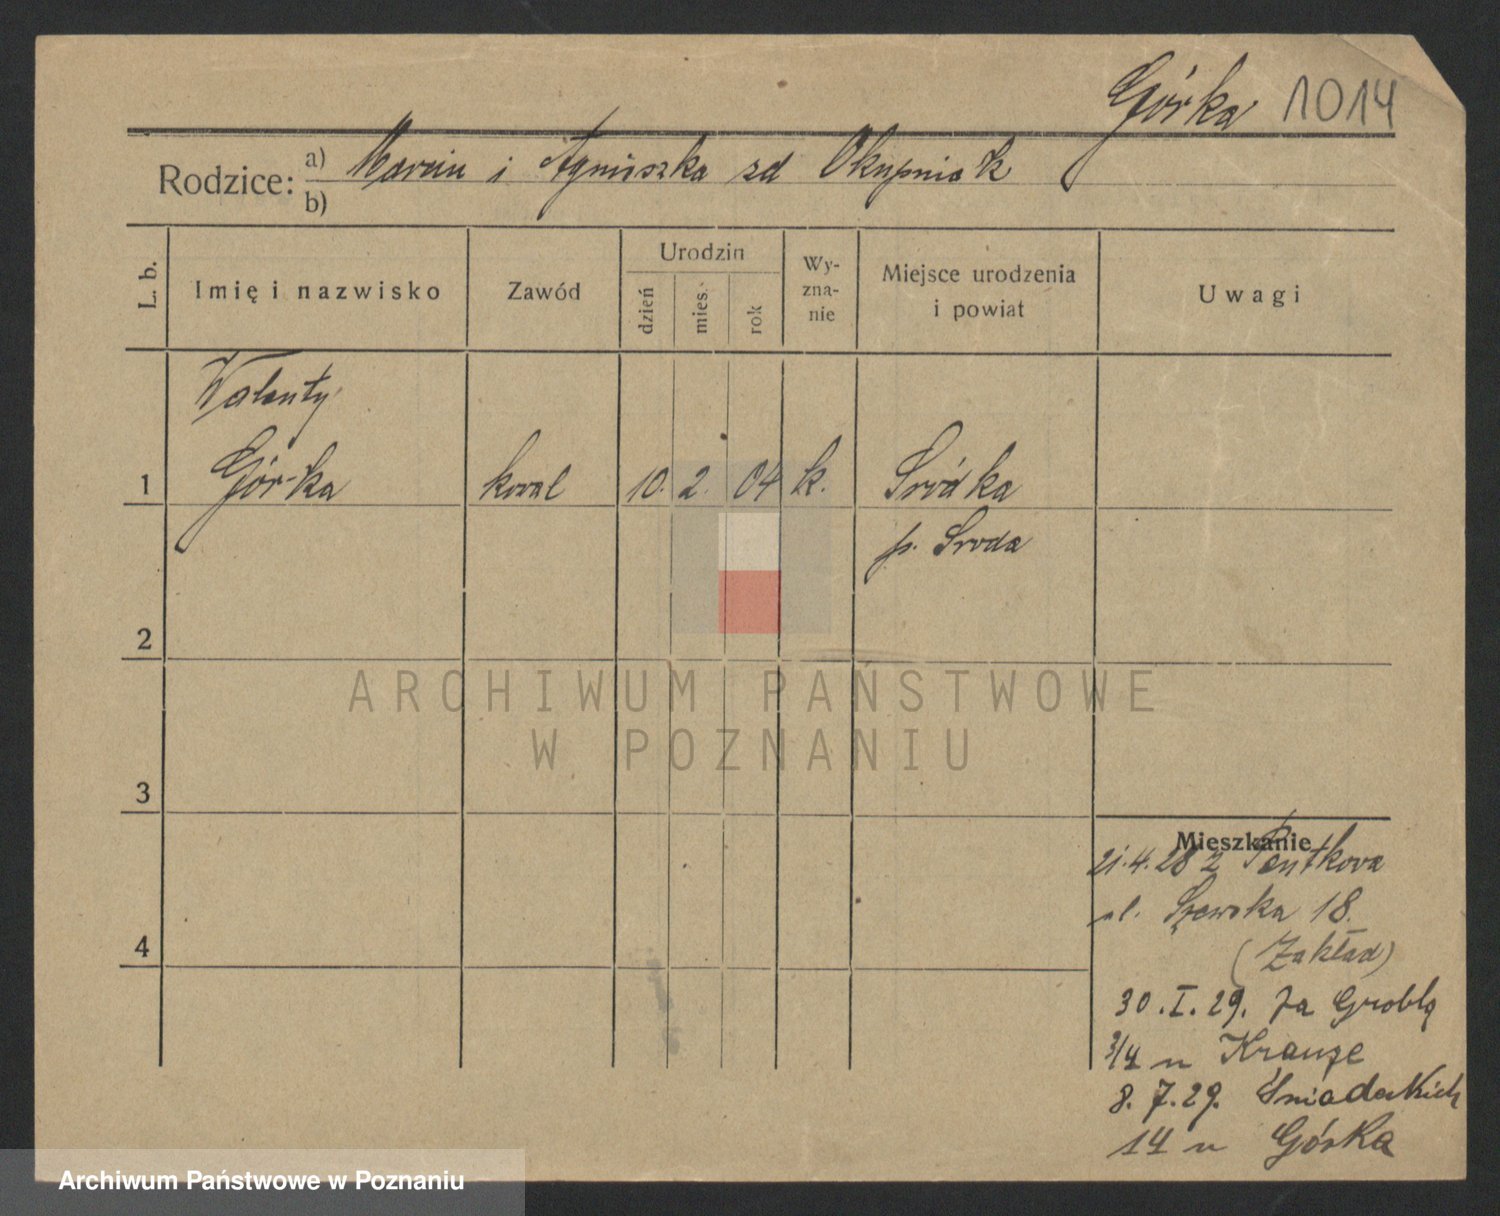 Górka 1014
Rodzice: a) Marcin i Agnieszka zd Okupniak
b)
L. b. Imię i nazwisko Zawód Urodzin dzień mies. rok Wy-zna-nie Miejsce urodzenia i powiat Uwagi
Walenty
1 Górka kowal 10. 2. 04 k. Śródka
p. Sroda
2
ARCHIWUM PAŃSTWOWE
W POZNANIU
3
Mieszkanie
21.4.28 z Pentkowa
ul. Szewska 18.
4 (Zakład)
30.I.29. Za Groblą
3/4 u Krauze
8.7.29. Śniadeckich
14 u Górka
Archiwum Państwowe w Poznaniu